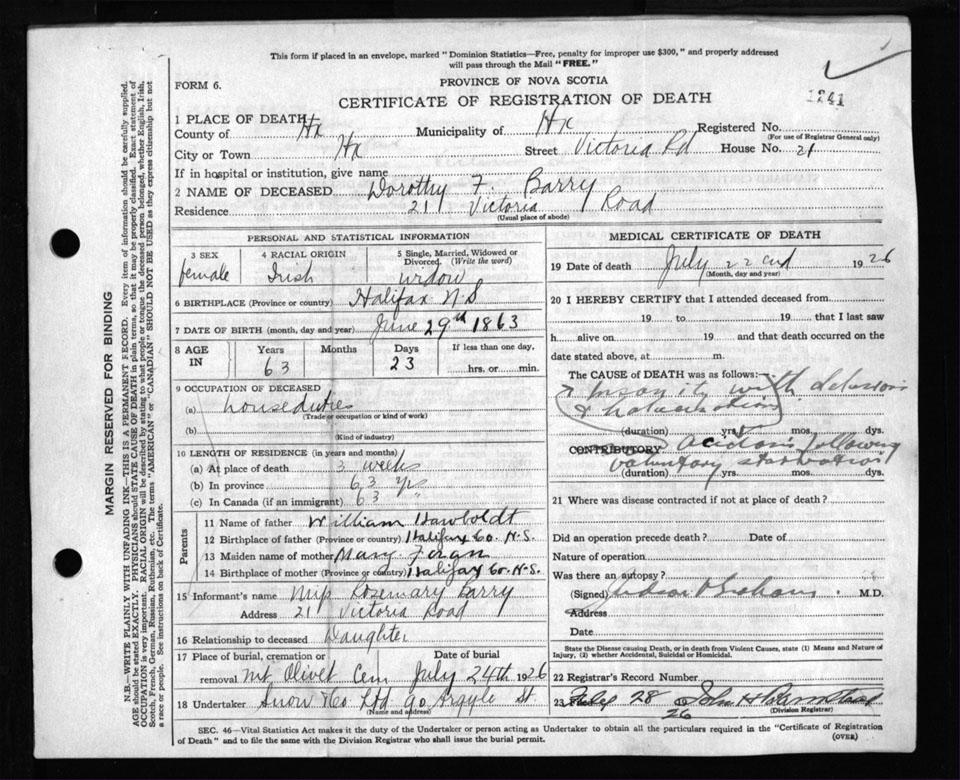 This form if placed in an envelope, marked "Dominion Statistics—Free, penalty for improper use $300," and properly addressed
will pass through the Mail "FREE."
FORM 6.
PROVINCE OF NOVA SCOTIA
CERTIFICATE OF REGISTRATION OF DEATH
1241
1 PLACE OF DEATH
County of Hx Municipality of Hx Registered No.
(For use of Registrar General only)
City or Town Hx Street Victoria Rd House No. 21
If in hospital or institution, give name
2 NAME OF DECEASED Dorothy F. Barry
Residence 21 Victoria Road
(Usual place of abode)
PERSONAL AND STATISTICAL INFORMATION
3 SEX 4 RACIAL ORIGIN 5 Single, Married, Widowed or Divorced. (Write the word)
female Irish widow
6 BIRTHPLACE (Province or country) Halifax N S
7 DATE OF BIRTH (month, day and year) June 29th 1863
8 AGE IN Years Months Days If less than one day,
63 23 hrs. or min.
9 OCCUPATION OF DECEASED
(a) house duties
(Trade or occupation or kind of work)
(b)
(Kind of industry)
10 LENGTH OF RESIDENCE (in years and months)
(a) At place of death 3 weeks
(b) In province 63 yrs
(c) In Canada (if an immigrant) 63 "
Parents
11 Name of father William Hawboldt
12 Birthplace of father (Province or country) Halifax Co. N.S.
13 Maiden name of mother Mary Foran
14 Birthplace of mother (Province or country) Halifax Co. N.S.
15 Informant's name Miss Rosemary Barry
Address 21 Victoria Road
16 Relationship to deceased Daughter
17 Place of burial, cremation or removal Date of burial
Mt Olivet Cem July 24th 1926
18 Undertaker Snow & Co Ltd 90 Argyle St.
(Name and address)
MEDICAL CERTIFICATE OF DEATH
19 Date of death July 22nd 1926
(Month, day and year)
20 I HEREBY CERTIFY that I attended deceased from
19 to 19 that I last saw
h alive on 19 and that death occurred on the
date stated above, at m.
The CAUSE OF DEATH was as follows:
Insanity with delusions
& halucinations
(duration) yrs. mos. dys.
CONTRIBUTORY Acidosis following
voluntary starvation
(duration) yrs. mos. dys.
21 Where was disease contracted if not at place of death?
Did an operation precede death? Date of
Nature of operation
Was there an autopsy?
(Signed) M.D.
Address
Date
State the Disease causing Death, or in death from Violent Causes, state (1) Means and Nature of
Injury, (2) whether Accidental, Suicidal or Homicidal.
22 Registrar's Record Number
23 July 28 1926 John H
(Division Registrar)
SEC. 46—Vital Statistics Act makes it the duty of the Undertaker or person acting as Undertaker to obtain all the particulars required in the "Certificate of Registration
of Death" and to file the same with the Division Registrar who shall issue the burial permit.
(OVER)
MARGIN RESERVED FOR BINDING
N.B.—WRITE PLAINLY WITH UNFADING INK—THIS IS A PERMANENT RECORD. Every item of information should be carefully supplied.
AGE should be stated EXACTLY. PHYSICIANS should STATE CAUSE OF DEATH in plain terms, so that it may be properly classified. Exact statement of
OCCUPATION is very important. RACIAL ORIGIN will be described by stating to what people or tongue the deceased person belonged, whether English, Irish,
Scotch, French, German, Russian, Ruthenian, etc. The terms "AMERICAN" or "CANADIAN" SHOULD NOT BE USED as they express citizenship but not
a race or people. See instructions on back of Certificate.